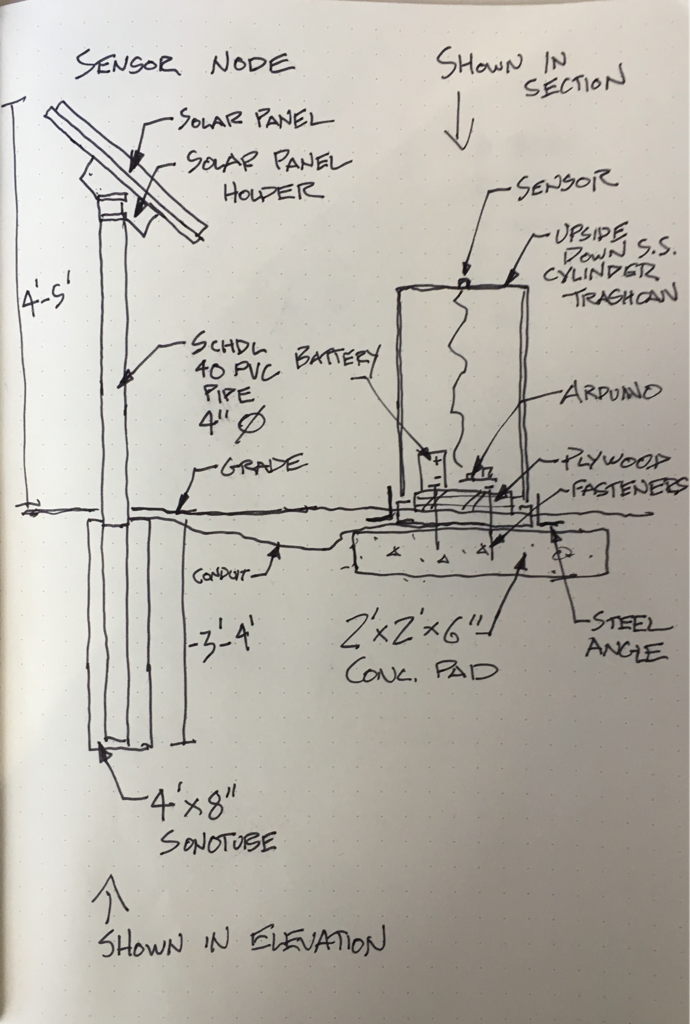 SENSOR NODE
SHOWN IN
SECTION
SOLAR PANEL
SOLAR PANEL
HOLDER
SENSOR
UPSIDE
DOWN S.S.
CYLINDER
TRASHCAN
4'-5'
SCHDL
40 PVC
PIPE
4" Ø
BATTERY
+
-
ARDUINO
GRADE
PLYWOOD
FASTENERS
CONDUIT
-3'-4'
2'x2'x6"
CONC. PAD
STEEL
ANGLE
4'x8"
SONOTUBE
SHOWN IN ELEVATION